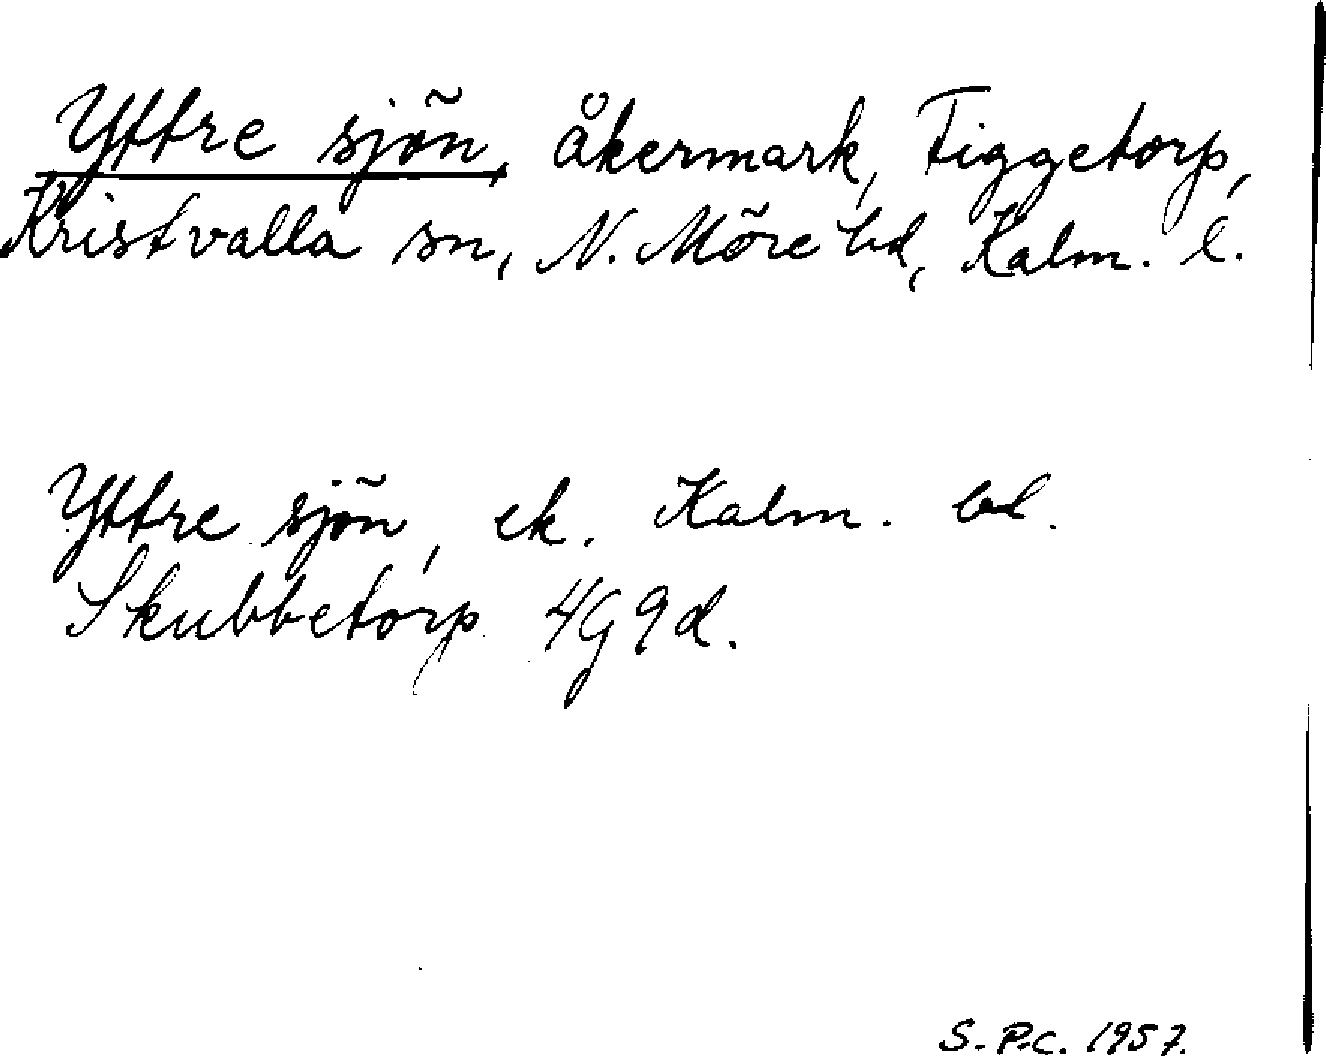 Yttre sjön, åkermark, Tiggetorp,
Kristvalla sn, N. Möre hd, Kalm. l.
Yttre sjön, ek. Kalm. bl.
Skubbetorp 4G9d.
S.-P.C. 1957.